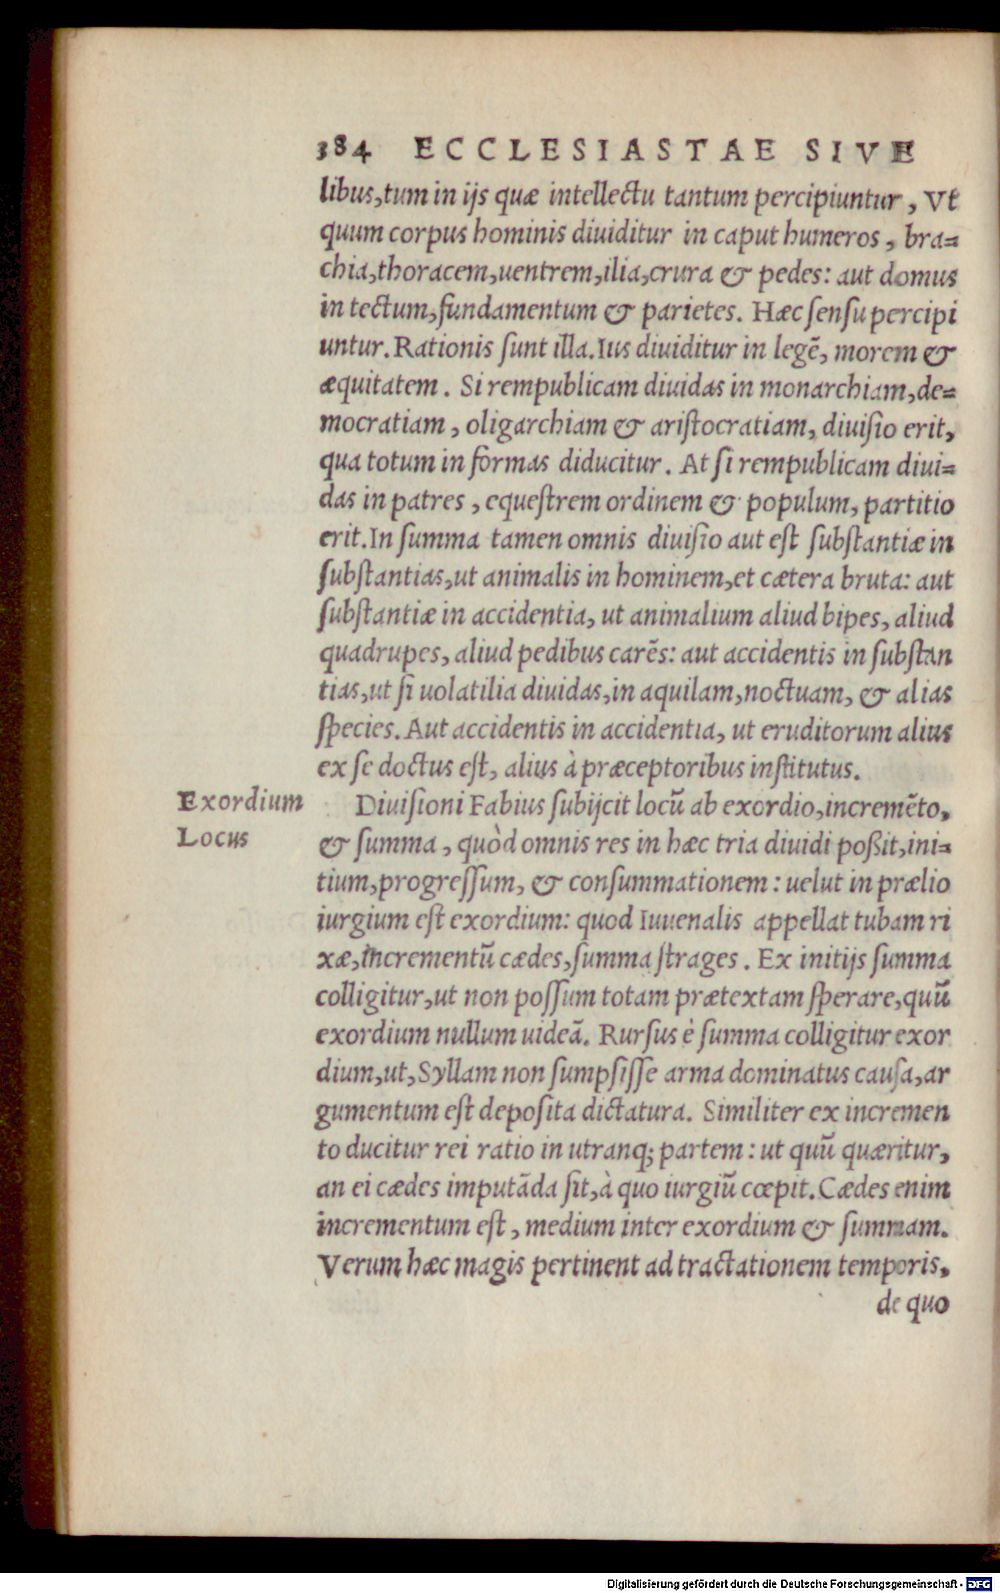 384 ECCLESIASTAE SIVE
libus,tum in ijs quæ intellectu tantum percipiuntur, Vt
quum corpus hominis diuiditur in caput humeros, bra=
chia,thoracem,uentrem,ilia,crura & pedes: aut domus
in tectum,fundamentum & parietes. Hæc sensu percipi
untur. Rationis sunt illa. Ius diuiditur in legẽ, morem &
æquitatem. Si rempublicam diuidas in monarchiam,de=
mocratiam, oligarchiam & aristocratiam, diuisio erit,
qua totum in formas diducitur. At si rempublicam diui=
das in patres, equestrem ordinem & populum, partitio
erit. In summa tamen omnis diuisio aut est substantiæ in
substantias,ut animalis in hominem,et cætera bruta: aut
substantiæ in accidentia, ut animalium aliud bipes, aliud
quadrupes, aliud pedibus carẽs: aut accidentis in substan
tias,ut si uolatilia diuidas,in aquilam,noctuam, & alias
species. Aut accidentis in accidentia, ut eruditorum alius
ex se doctus est, alius à præceptoribus institutus.
Exordium
Locus
Diuisioni Fabius subijcit locũ ab exordio,incremẽto,
& summa, quòd omnis res in hæc tria diuidi poßit,ini=
tium,progressum, & consummationem: uelut in prælio
iurgium est exordium: quod Iuuenalis appellat tubam ri
xæ,incrementũ cædes,summa strages. Ex initijs summa
colligitur,ut non possum totam prætextam sperare,quũ
exordium nullum uideã. Rursus è summa colligitur exor
dium,ut,Syllam non sumpsisse arma dominatus causa,ar
gumentum est deposita dictatura. Similiter ex incremen
to ducitur rei ratio in utranq; partem: ut quũ quæritur,
an ei cædes imputãda sit,à quo iurgiũ cœpit. Cædes enim
incrementum est, medium inter exordium & summam.
Verum hæc magis pertinent ad tractationem temporis,
de quo
Digitalisierung gefördert durch die Deutsche Forschungsgemeinschaft - DFG